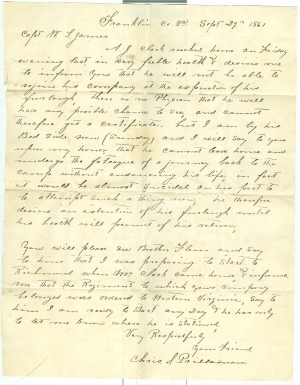 Franklin Co Va Sept 29th 1861
Capt W T James
A J Clark reached home on Friday
evening last in very feeble health & desires me
to inform you that he will not be able to
rejoin his Company at the expiration of his
furlough. There is no Physician that he will
have any possible chance to see and cannot
therefore get a certificate, but I am by his
Bed Side now (Sunday) and I will say to you
upon my honor that he cannot leave home and
undergo the fatigue of a journey back to the
camp without endangering his life, in fact
it would be almost Suicidal on his part to
to attempt such a thing now; he therefore
desires an extention of his furlough until
his health will permit of his return.
You will please see Brother and Say
to him that I was preparing to Start to
Richmond when Mr Clark came home & informed
me that the Regiment to which your Company
belonged was ordered to Western Virginia, Say to
him I am ready to Start any Day & he has only
to let me know where he is Stationed
Very Respectfully
Your Friend
Chris S